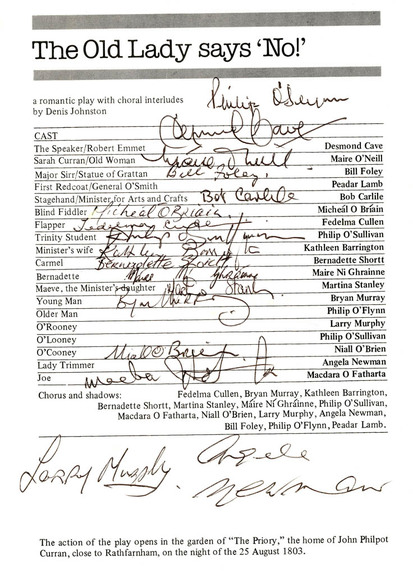 The Old Lady says 'No!'
a romantic play with choral interludes
by Denis Johnston
Philip O'Flynn
Desmond Cave
CAST
The Speaker/Robert Emmet Desmond Cave
Sarah Curran/Old Woman Maire O'Neill Maire O'Neill
Major Sirr/Statue of Grattan Bill Foley, Bill Foley
First Redcoat/General O'Smith Peadar Lamb
Stagehand/Minister for Arts and Crafts Bob Carlile Bob Carlile
Blind Fiddler Micheál O Briain Micheál O Bríain
Flapper Fedelma Cullen
Trinity Student Philip O'Sullivan
Minister's wife Kathleen Barrington
Carmel Bernadette Shortt Bernadette Shortt
Bernadette Máire Ní Ghráinne Maire Ni Ghrainne
Maeve, the Minister's daughter Martina Stanley
Young Man Bryan Murray Bryan Murray
Older Man Philip O'Flynn
O'Rooney Larry Murphy
O'Looney Philip O'Sullivan
O'Cooney Niall O'Brien Niall O'Brien
Lady Trimmer Angela Newman
Joe Macdara O Fatharta
Chorus and shadows: Fedelma Cullen, Bryan Murray, Kathleen Barrington,
Bernadette Shortt, Martina Stanley, Máire Ni Ghrainne, Philip O'Sullivan,
Macdara O Fatharta, Niall O'Brien, Larry Murphy, Angela Newman,
Bill Foley, Philip O'Flynn, Peadar Lamb.
Larry Murphy
Angela
Newman
The action of the play opens in the garden of "The Priory," the home of John Philpot
Curran, close to Rathfarnham, on the night of the 25 August 1803.